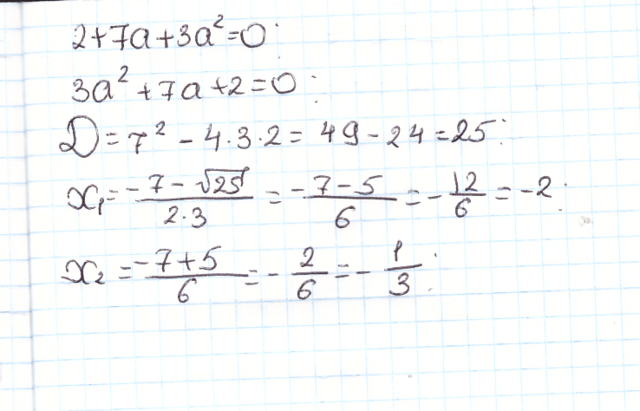 2+7a+3a²=0;
3a²+7a+2=0;
D=7²-4·3·2=49-24=25;
x₁=(-7-√25)/(2·3)=(-7-5)/6=-12/6=-2;
x₂=(-7+5)/6=-2/6=-1/3;